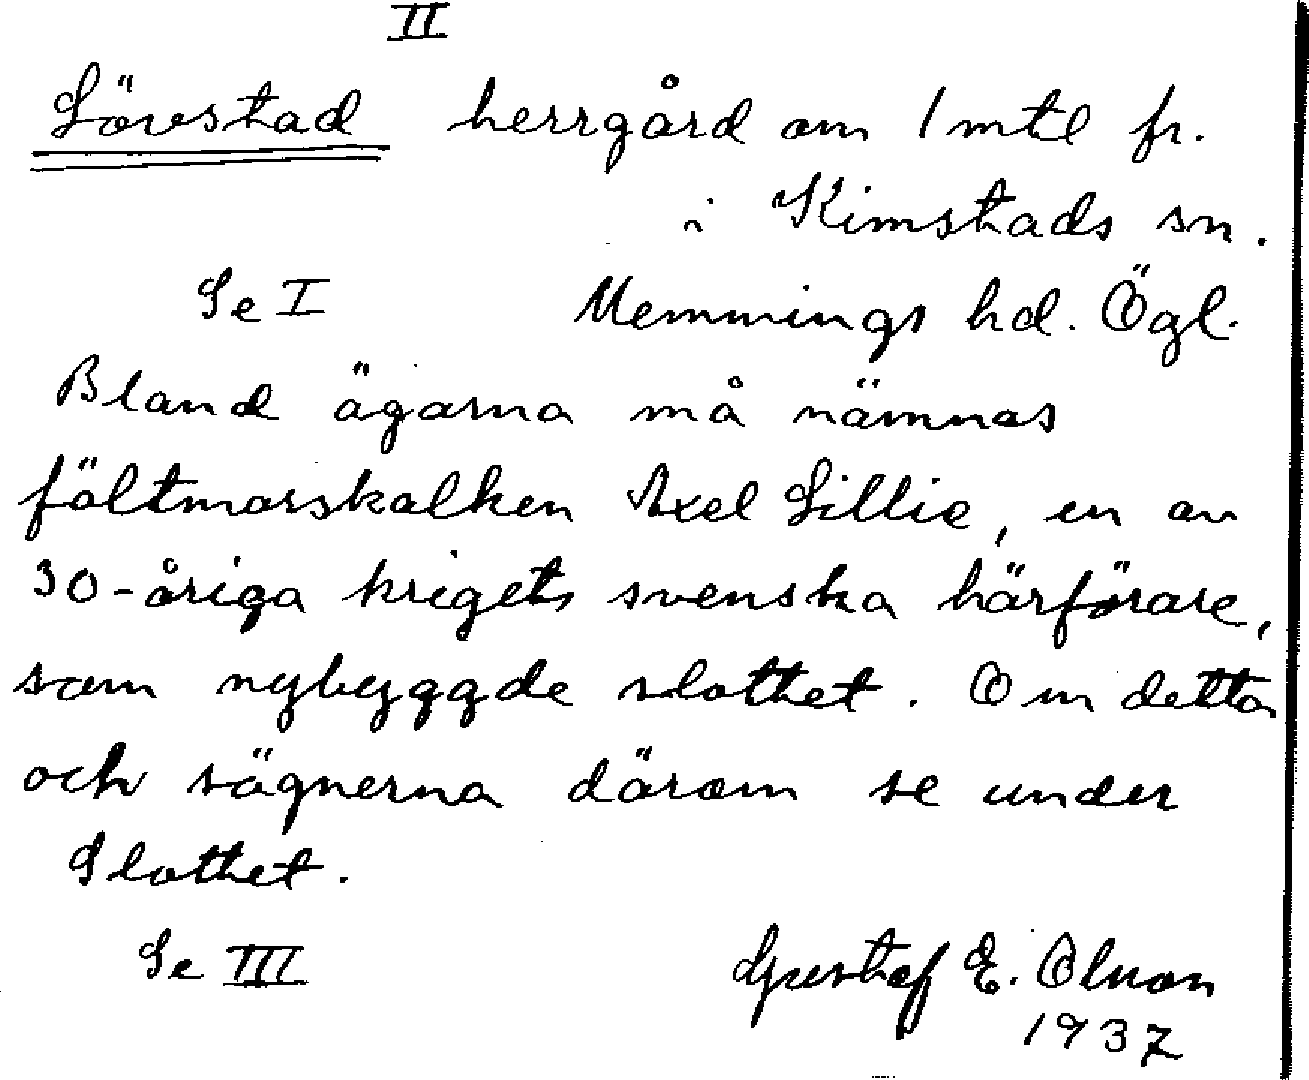 II
Lövstad herrgård om 1 mtl fr.
i Kimstads sn.
Se I Memmings hd. Ögl.
Bland ägarna må nämnas
fältmarskalken Axel Lillie, en av
30-åriga krigets svenska härförare,
som nybyggde slottet. Om detta
och sägnerna därom se under
Slottet.
Se III Gustaf E. Olsson
1937